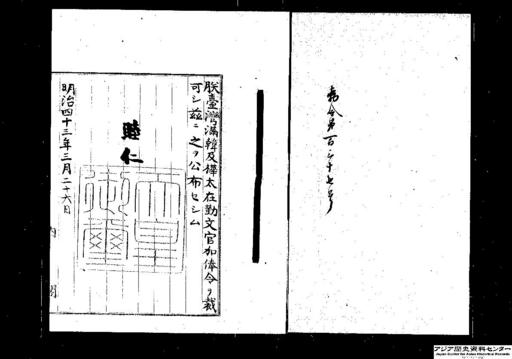 勅令第百三十七号
朕臺灣滿韓及樺太在勤文官加俸令ヲ裁
可シ茲ニ之ヲ公布セシム
睦仁
天皇
御璽
明治四十三年三月二十六日
内閣
アジア歴史資料センター
Japan Center for Asian Historical Records